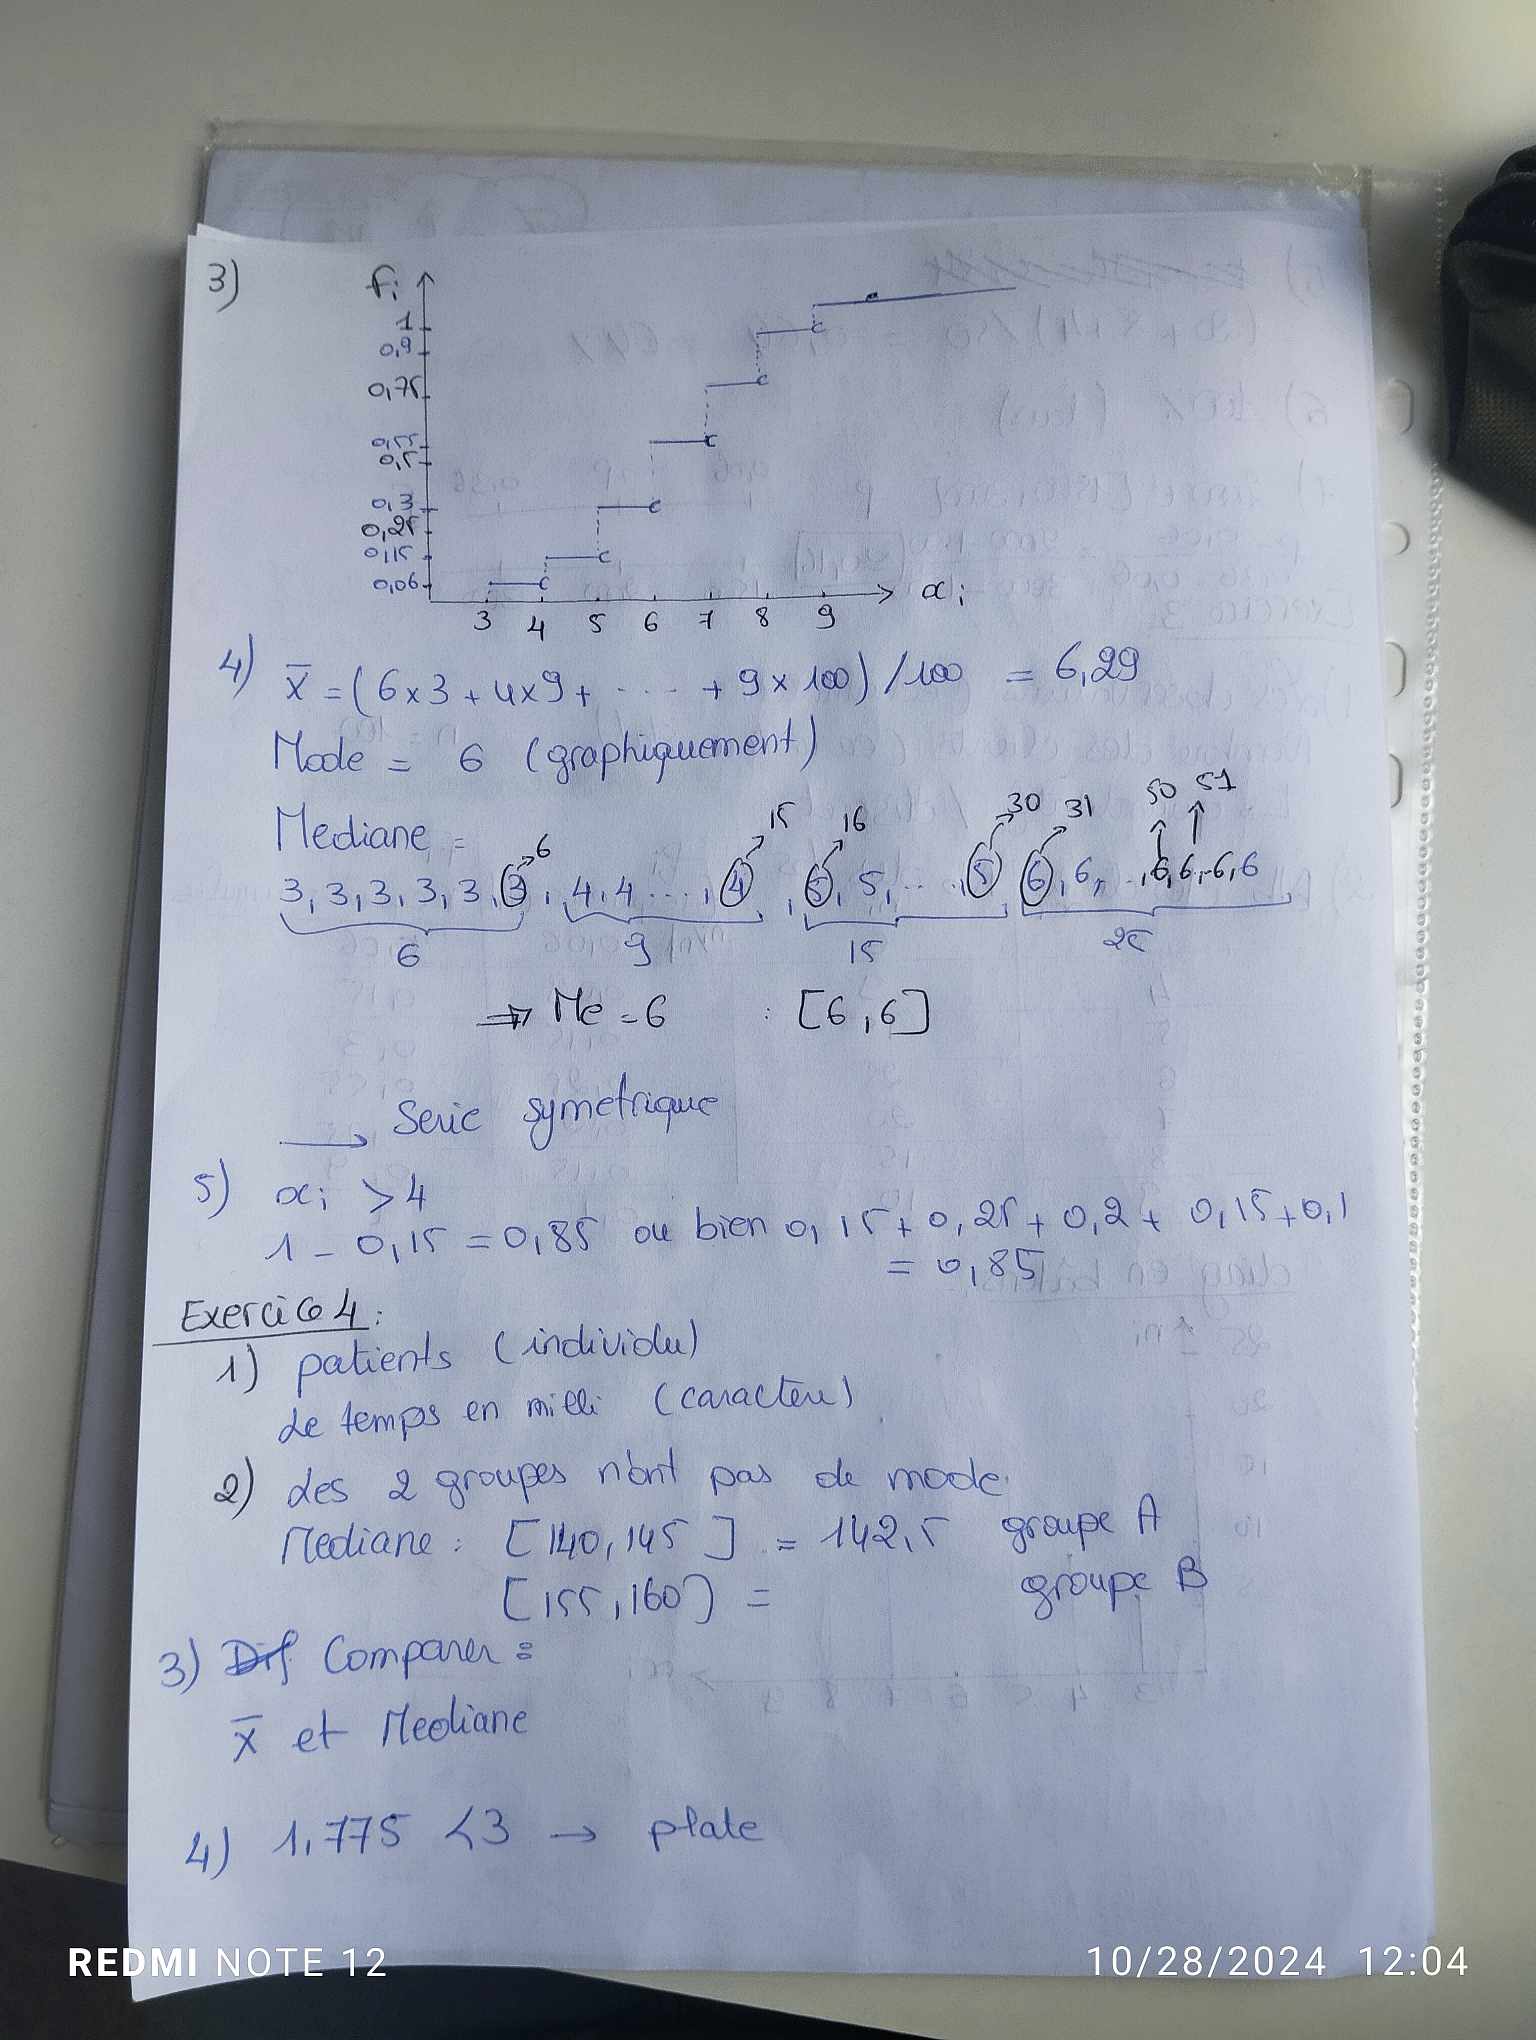 3)
fi
1
0,9
0,75
0,55
0,5
0,3
0,25
0,15
0,06
3 4 5 6 7 8 9 xi
4) x̄ = (6×3 + 4×9 + .... + 9×100) / 100 = 6,29
Mode = 6 (graphiquement)
Mediane =
6 15 16 30 31 50 51
3, 3, 3, 3, 3, 3, 4, 4 ..., 4, 5, 5, ... 5, 6, 6, .., 6, 6, -6, 6
6 9 15 25
⇒ Me = 6 : [6,6]
→ Serie symetrique
5) xi > 4
1 - 0,15 = 0,85 ou bien 0,15 + 0,25 + 0,2 + 0,15 + 0,1
= 0,85
Exercice 4 :
1) patients (individu)
Le temps en milli (caractère)
2) Les 2 groupes n'ont pas de mode.
Mediane : [140, 145] = 142,5 groupe A
[155, 160] = groupe B
3) Dif Comparer :
x̄ et Mediane
4) 1,775 < 3 → plate
REDMI NOTE 12
10/28/2024 12:04